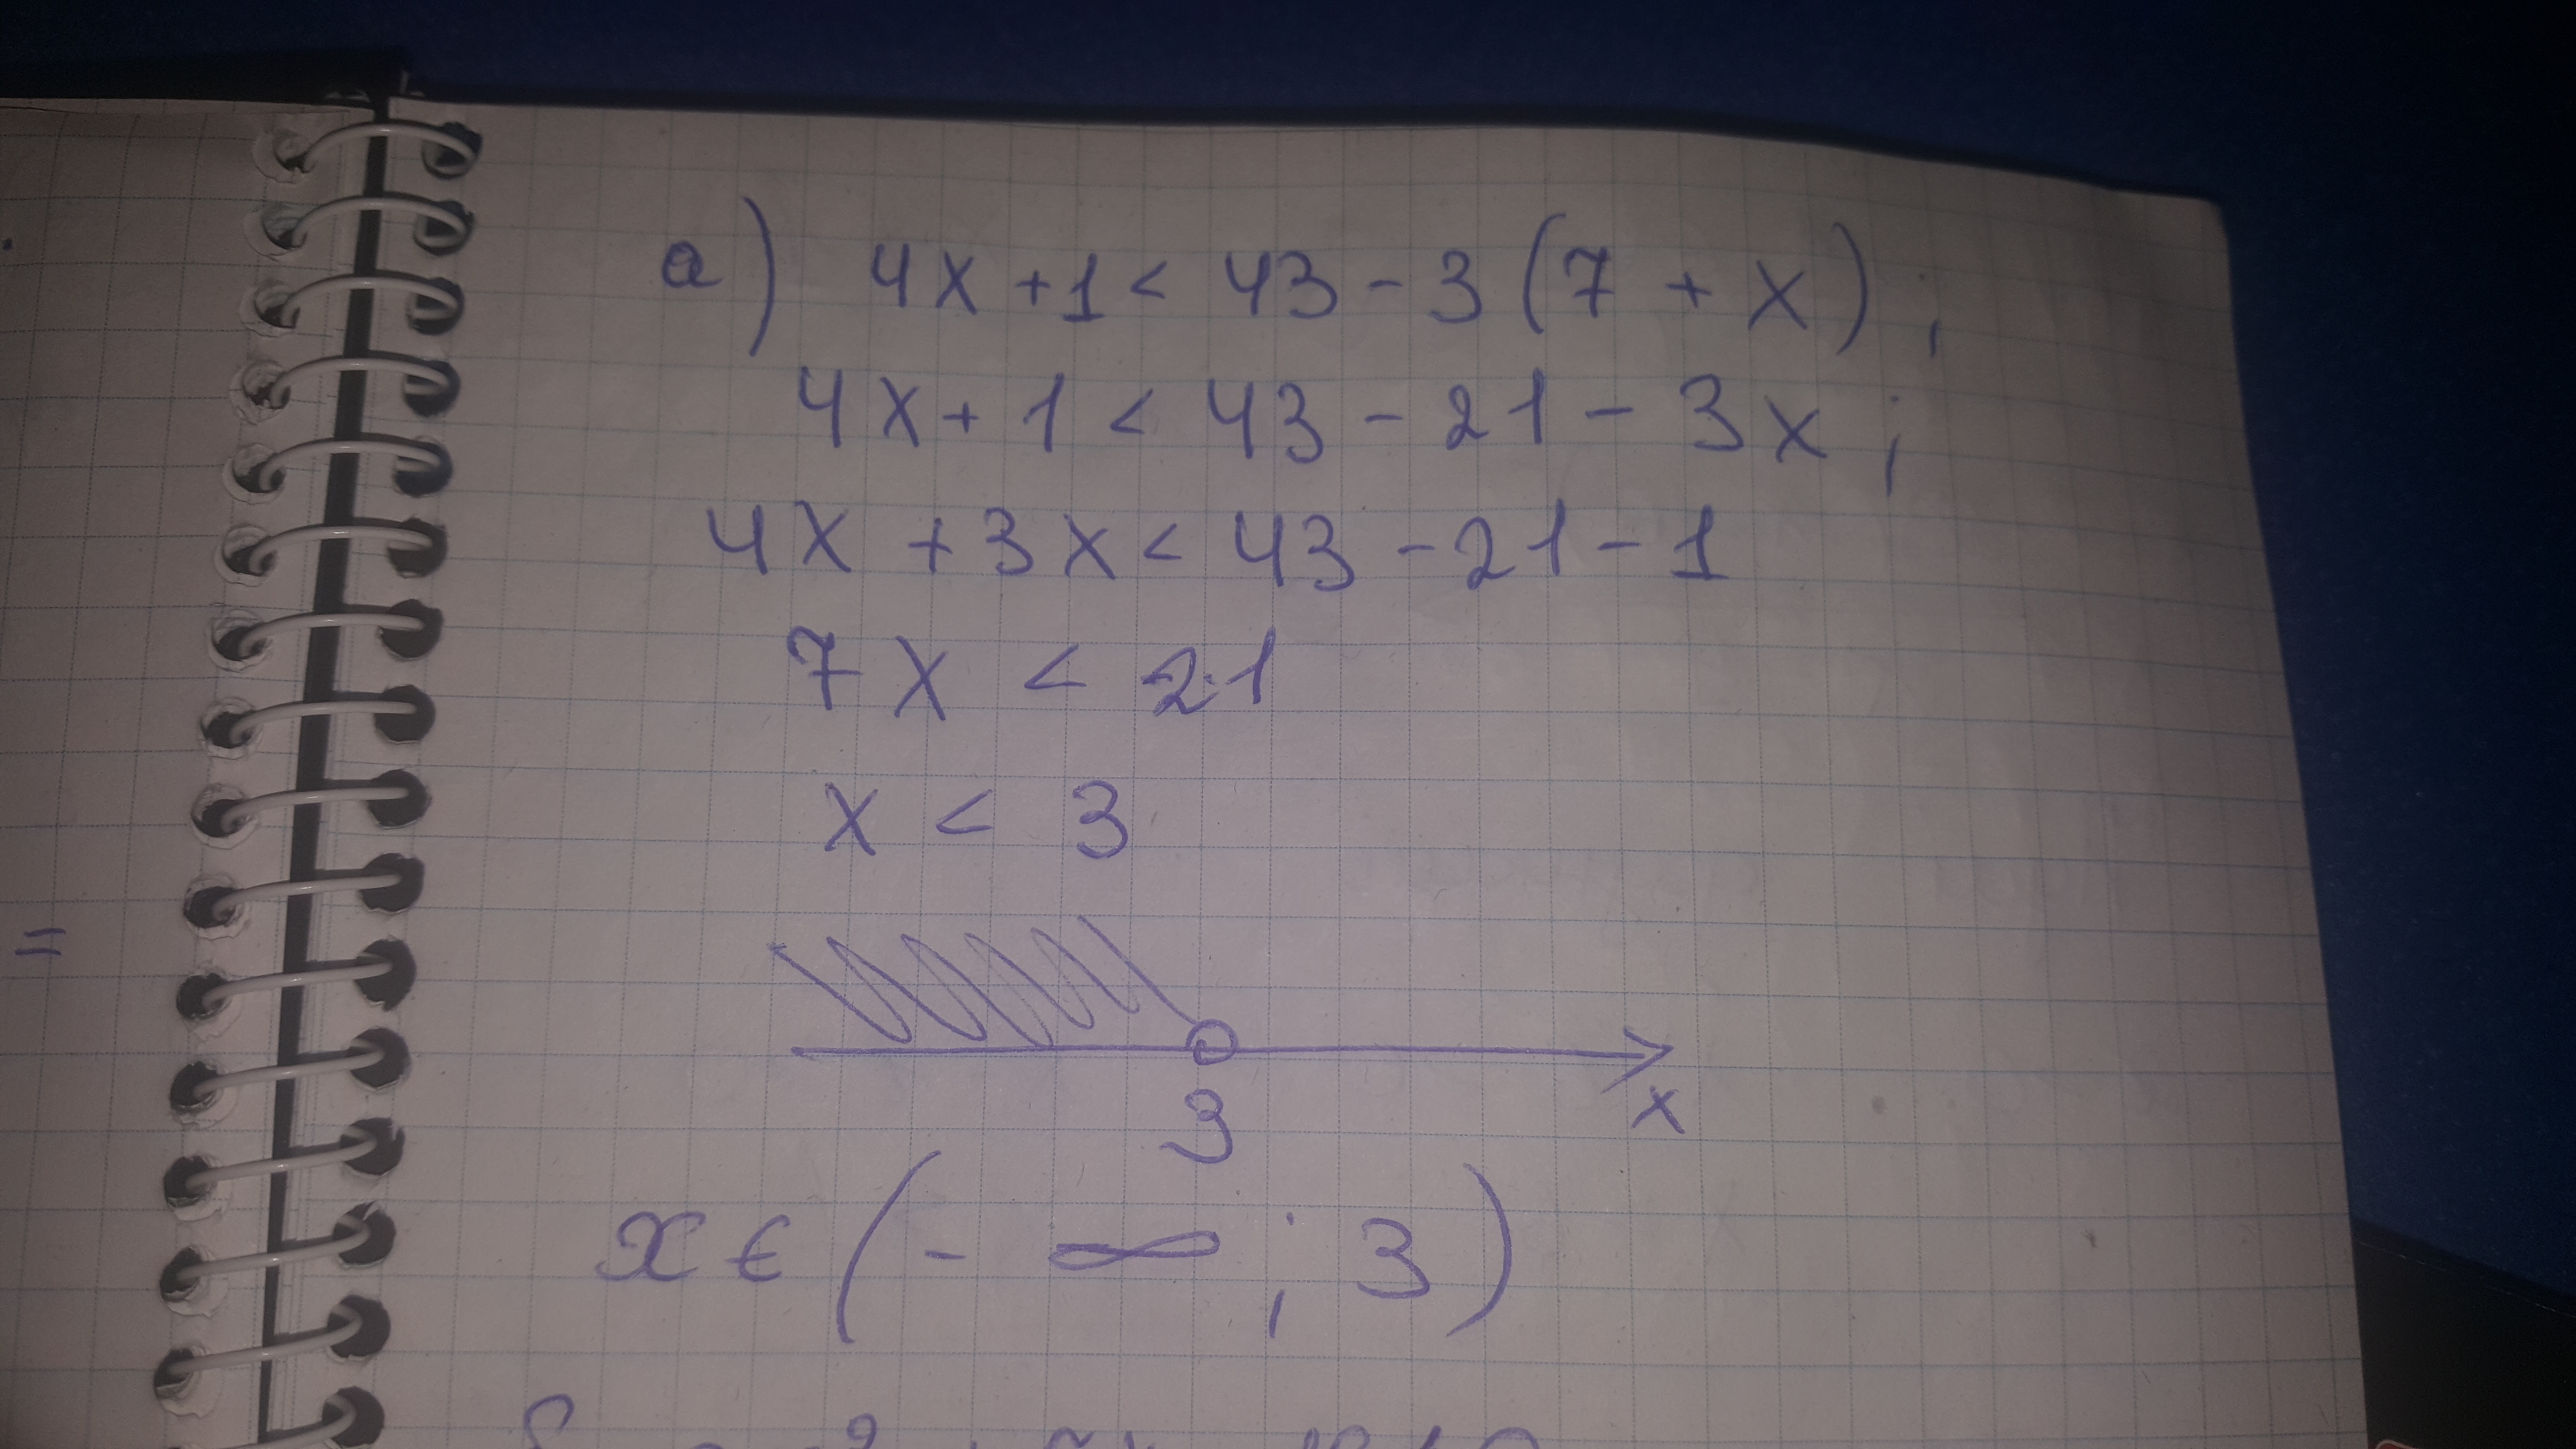 =
а) 4x + 1 < 43 - 3 (7 + x) ;
4x + 1 < 43 - 21 - 3x ;
4x + 3x < 43 - 21 - 1
7x < 21
x < 3
3
x
x ∈ (- ∞ ; 3)